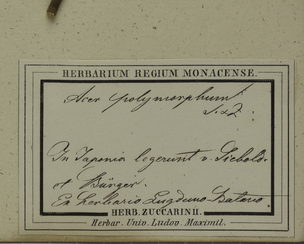 HERBARIUM REGIUM MONACENSE.
Acer polymorphum
S. & Z.
In Japonia legerunt v. Siebold
et Bürger.
Ex herbario Lugduno-Batavo.
HERB. ZUCCARINII.
Herbar. Univ. Ludov. Maximil.